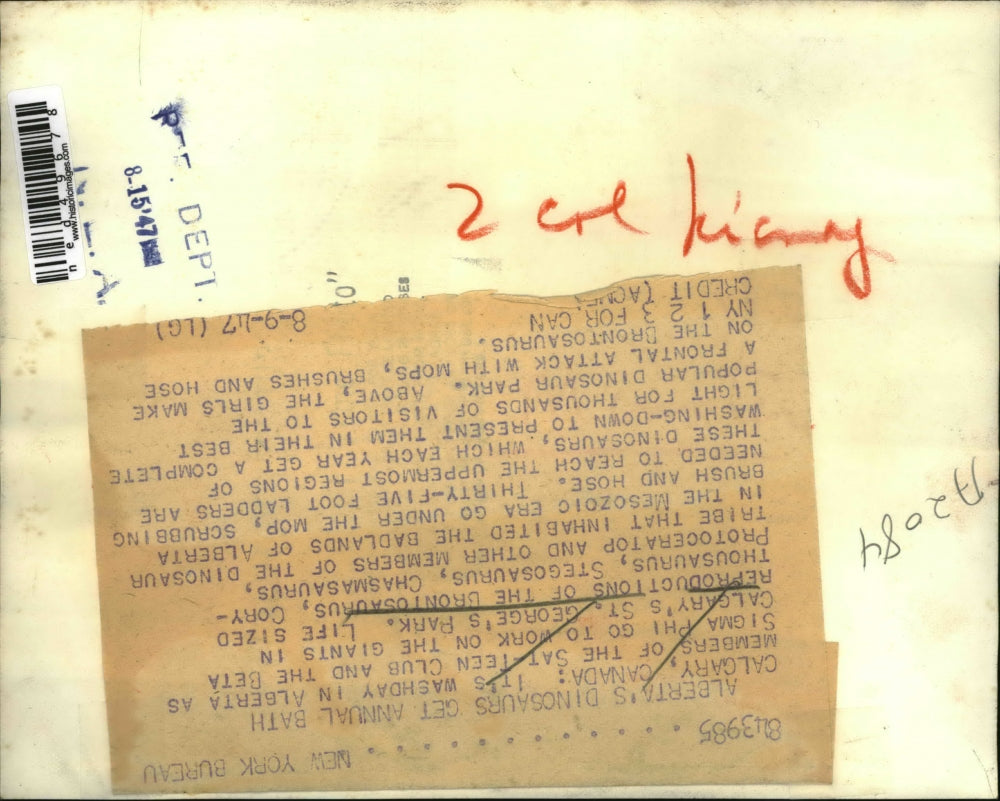 843985 . . . . . . . . . . . . . NEW YORK BUREAU
ALBERTA'S DINOSAURS GET ANNUAL BATH
CALGARY, CANADA: IT'S WASHDAY IN ALBERTA AS
MEMBERS OF THE SAT-TEEN CLUB AND THE BETA
SIGMA PHI GO TO WORK ON THE GIANTS IN
CALGARY'S ST. GEORGE'S PARK. LIFE SIZED
REPRODUCTIONS OF THE BRONTOSAURUS, CORY-
THOUSAURUS, STEGOSAURUS, CHASMASAURUS,
PROTOCERATOP AND OTHER MEMBERS OF THE DINOSAUR
TRIBE THAT INHABITED THE BADLANDS OF ALBERTA
IN THE MESOZOIC ERA GO UNDER THE MOP, SCRUBBING
BRUSH AND HOSE. THIRTY-FIVE FOOT LADDERS ARE
NEEDED TO REACH THE UPPERMOST REGIONS OF
THESE DINOSAURS, WHICH EACH YEAR GET A COMPLETE
WASHING-DOWN TO PRESENT THEM IN THEIR BEST
LIGHT FOR THOUSANDS OF VISITORS TO THE
POPULAR DINOSAUR PARK. ABOVE, THE GIRLS MAKE
A FRONTAL ATTACK WITH MOPS, BRUSHES AND HOSE
ON THE BRONTOSAURUS.
NY 1 2 3 FOR CAN
CREDIT (ACME) 8-9-47 (LG)
2 col
DEPT.
8-15'47
N.E.A.
www.historicimages.com
ned49678
A2084